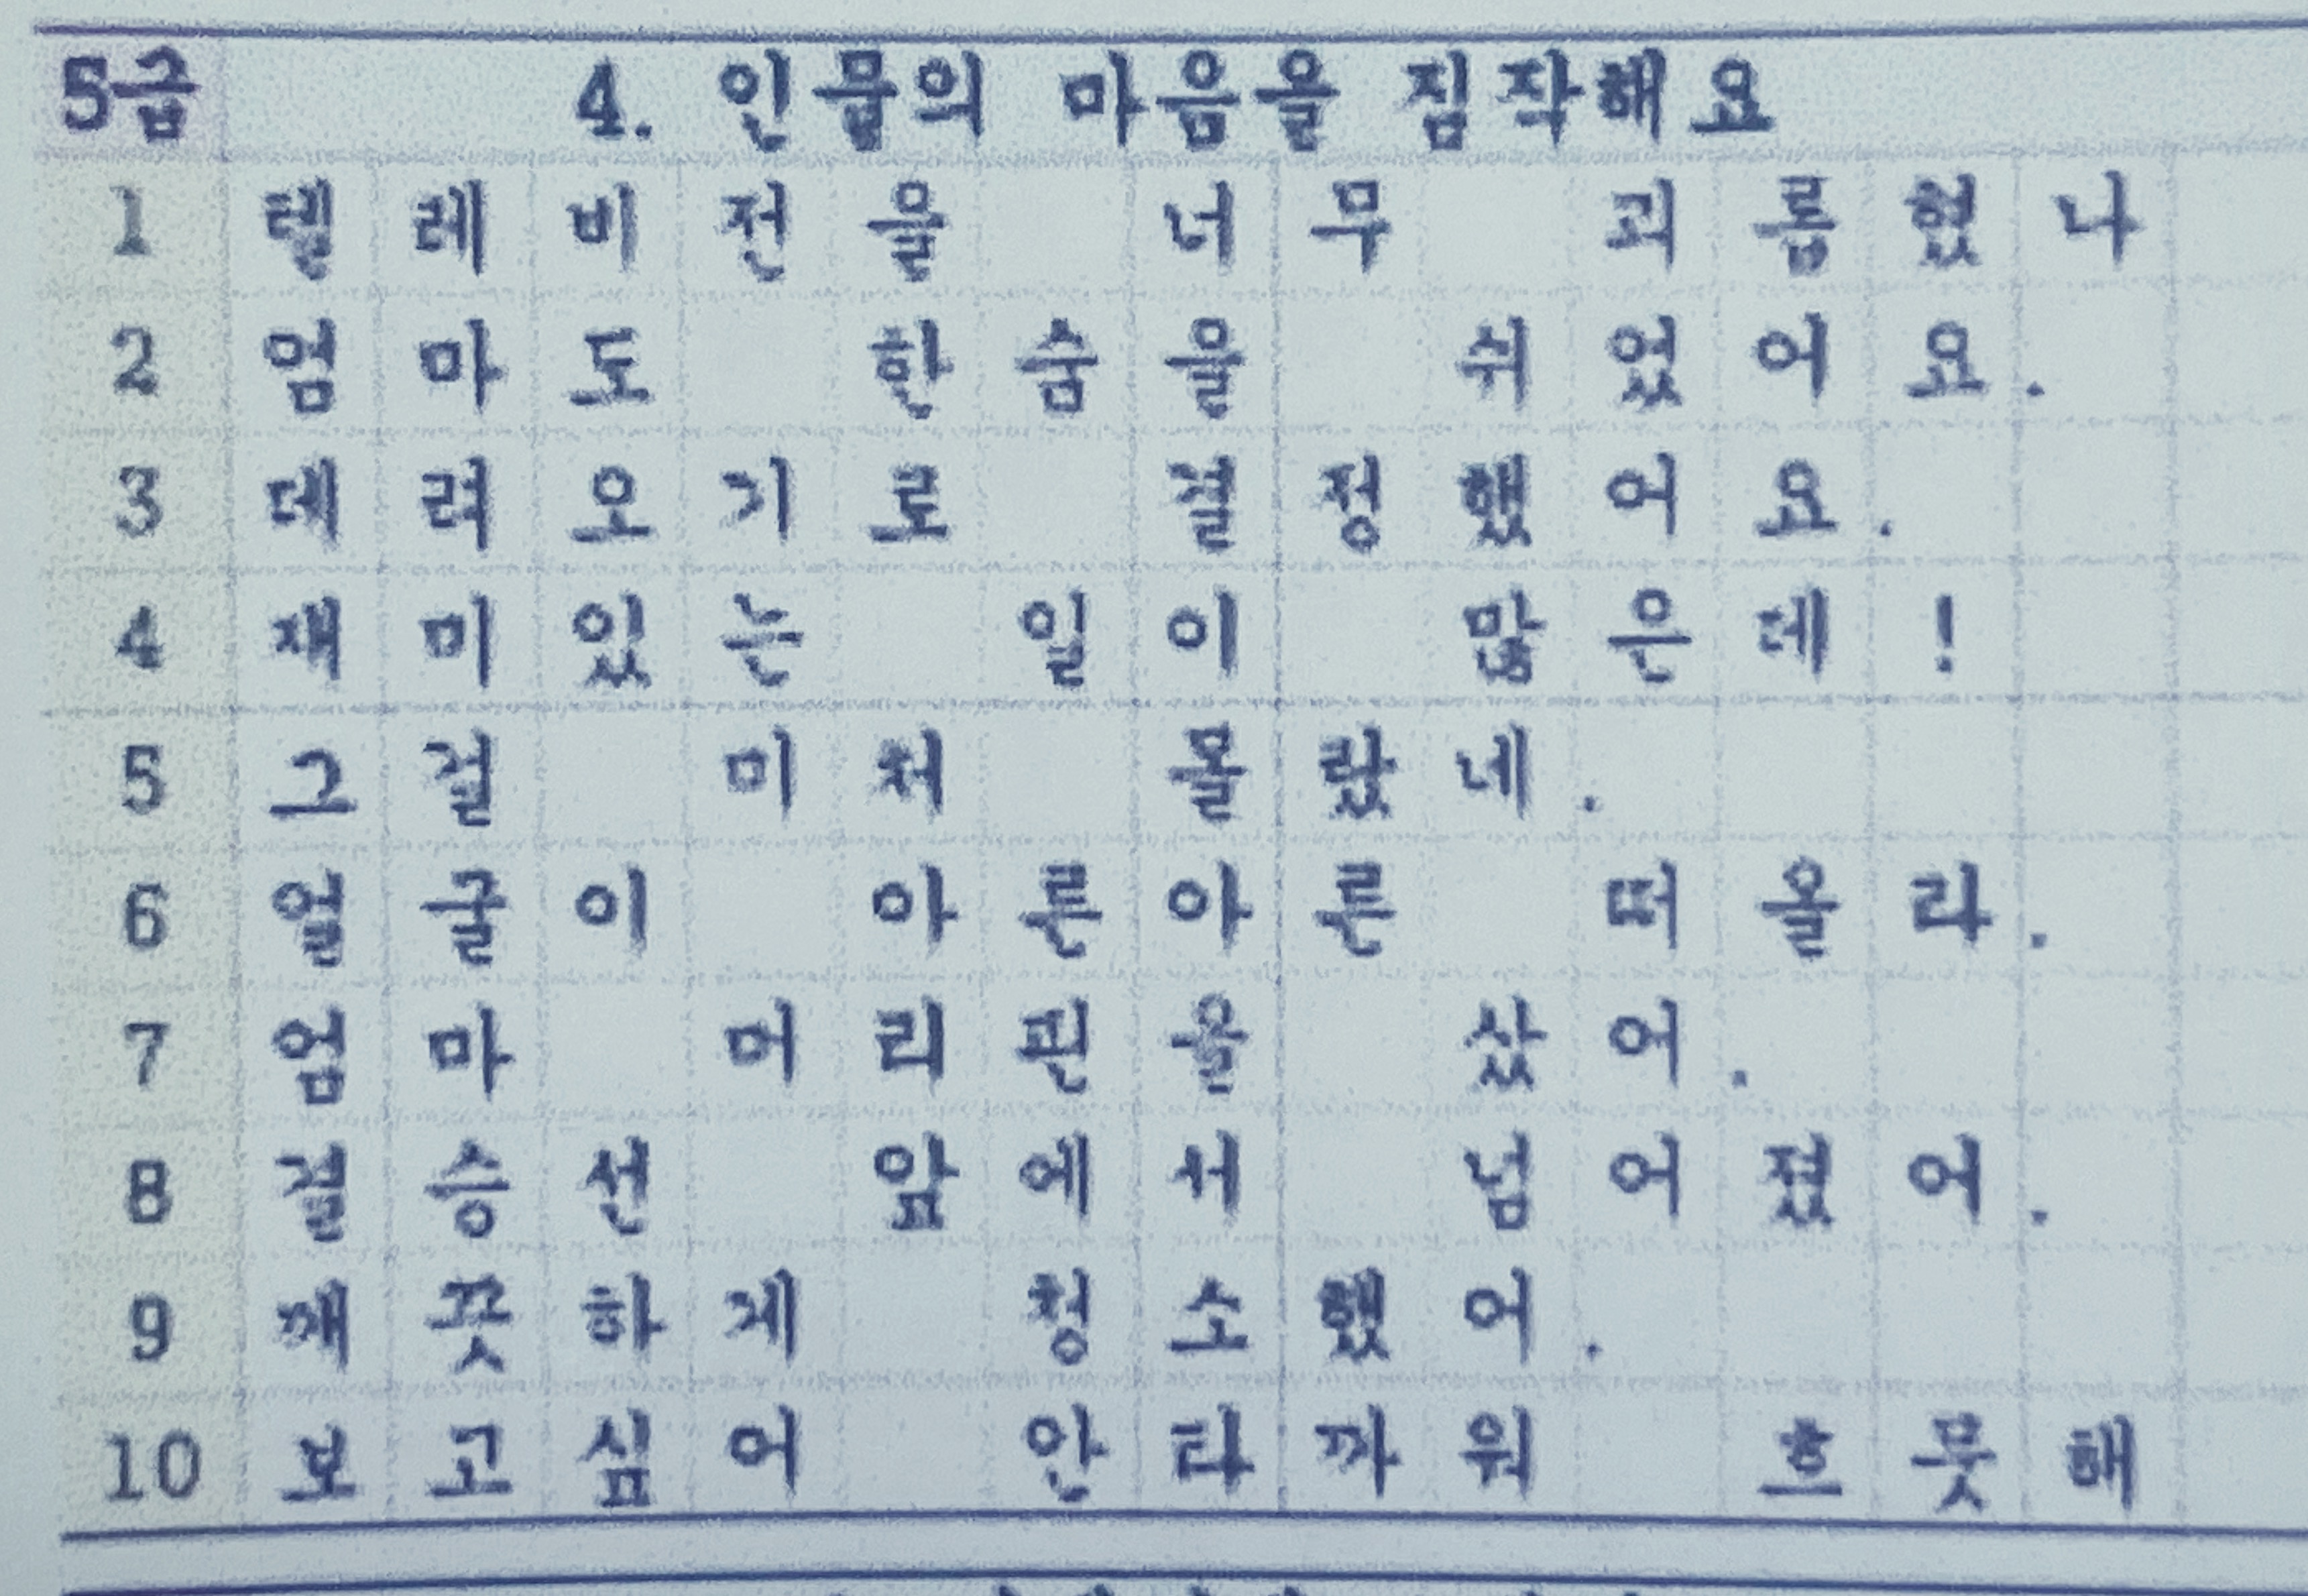 5급 4. 인물의 마음을 짐작해요
1 텔레비전을 너무 괴롭혔나
2 엄마도 한숨을 쉬었어요.
3 데려오기로 결정했어요.
4 재미있는 일이 많은데!
5 그걸 미처 몰랐네.
6 얼굴이 아른아른 떠올라.
7 엄마 머리핀을 샀어.
8 결승선 앞에서 넘어졌어.
9 깨끗하게 청소했어.
10 보고싶어 안타까워 흐뭇해